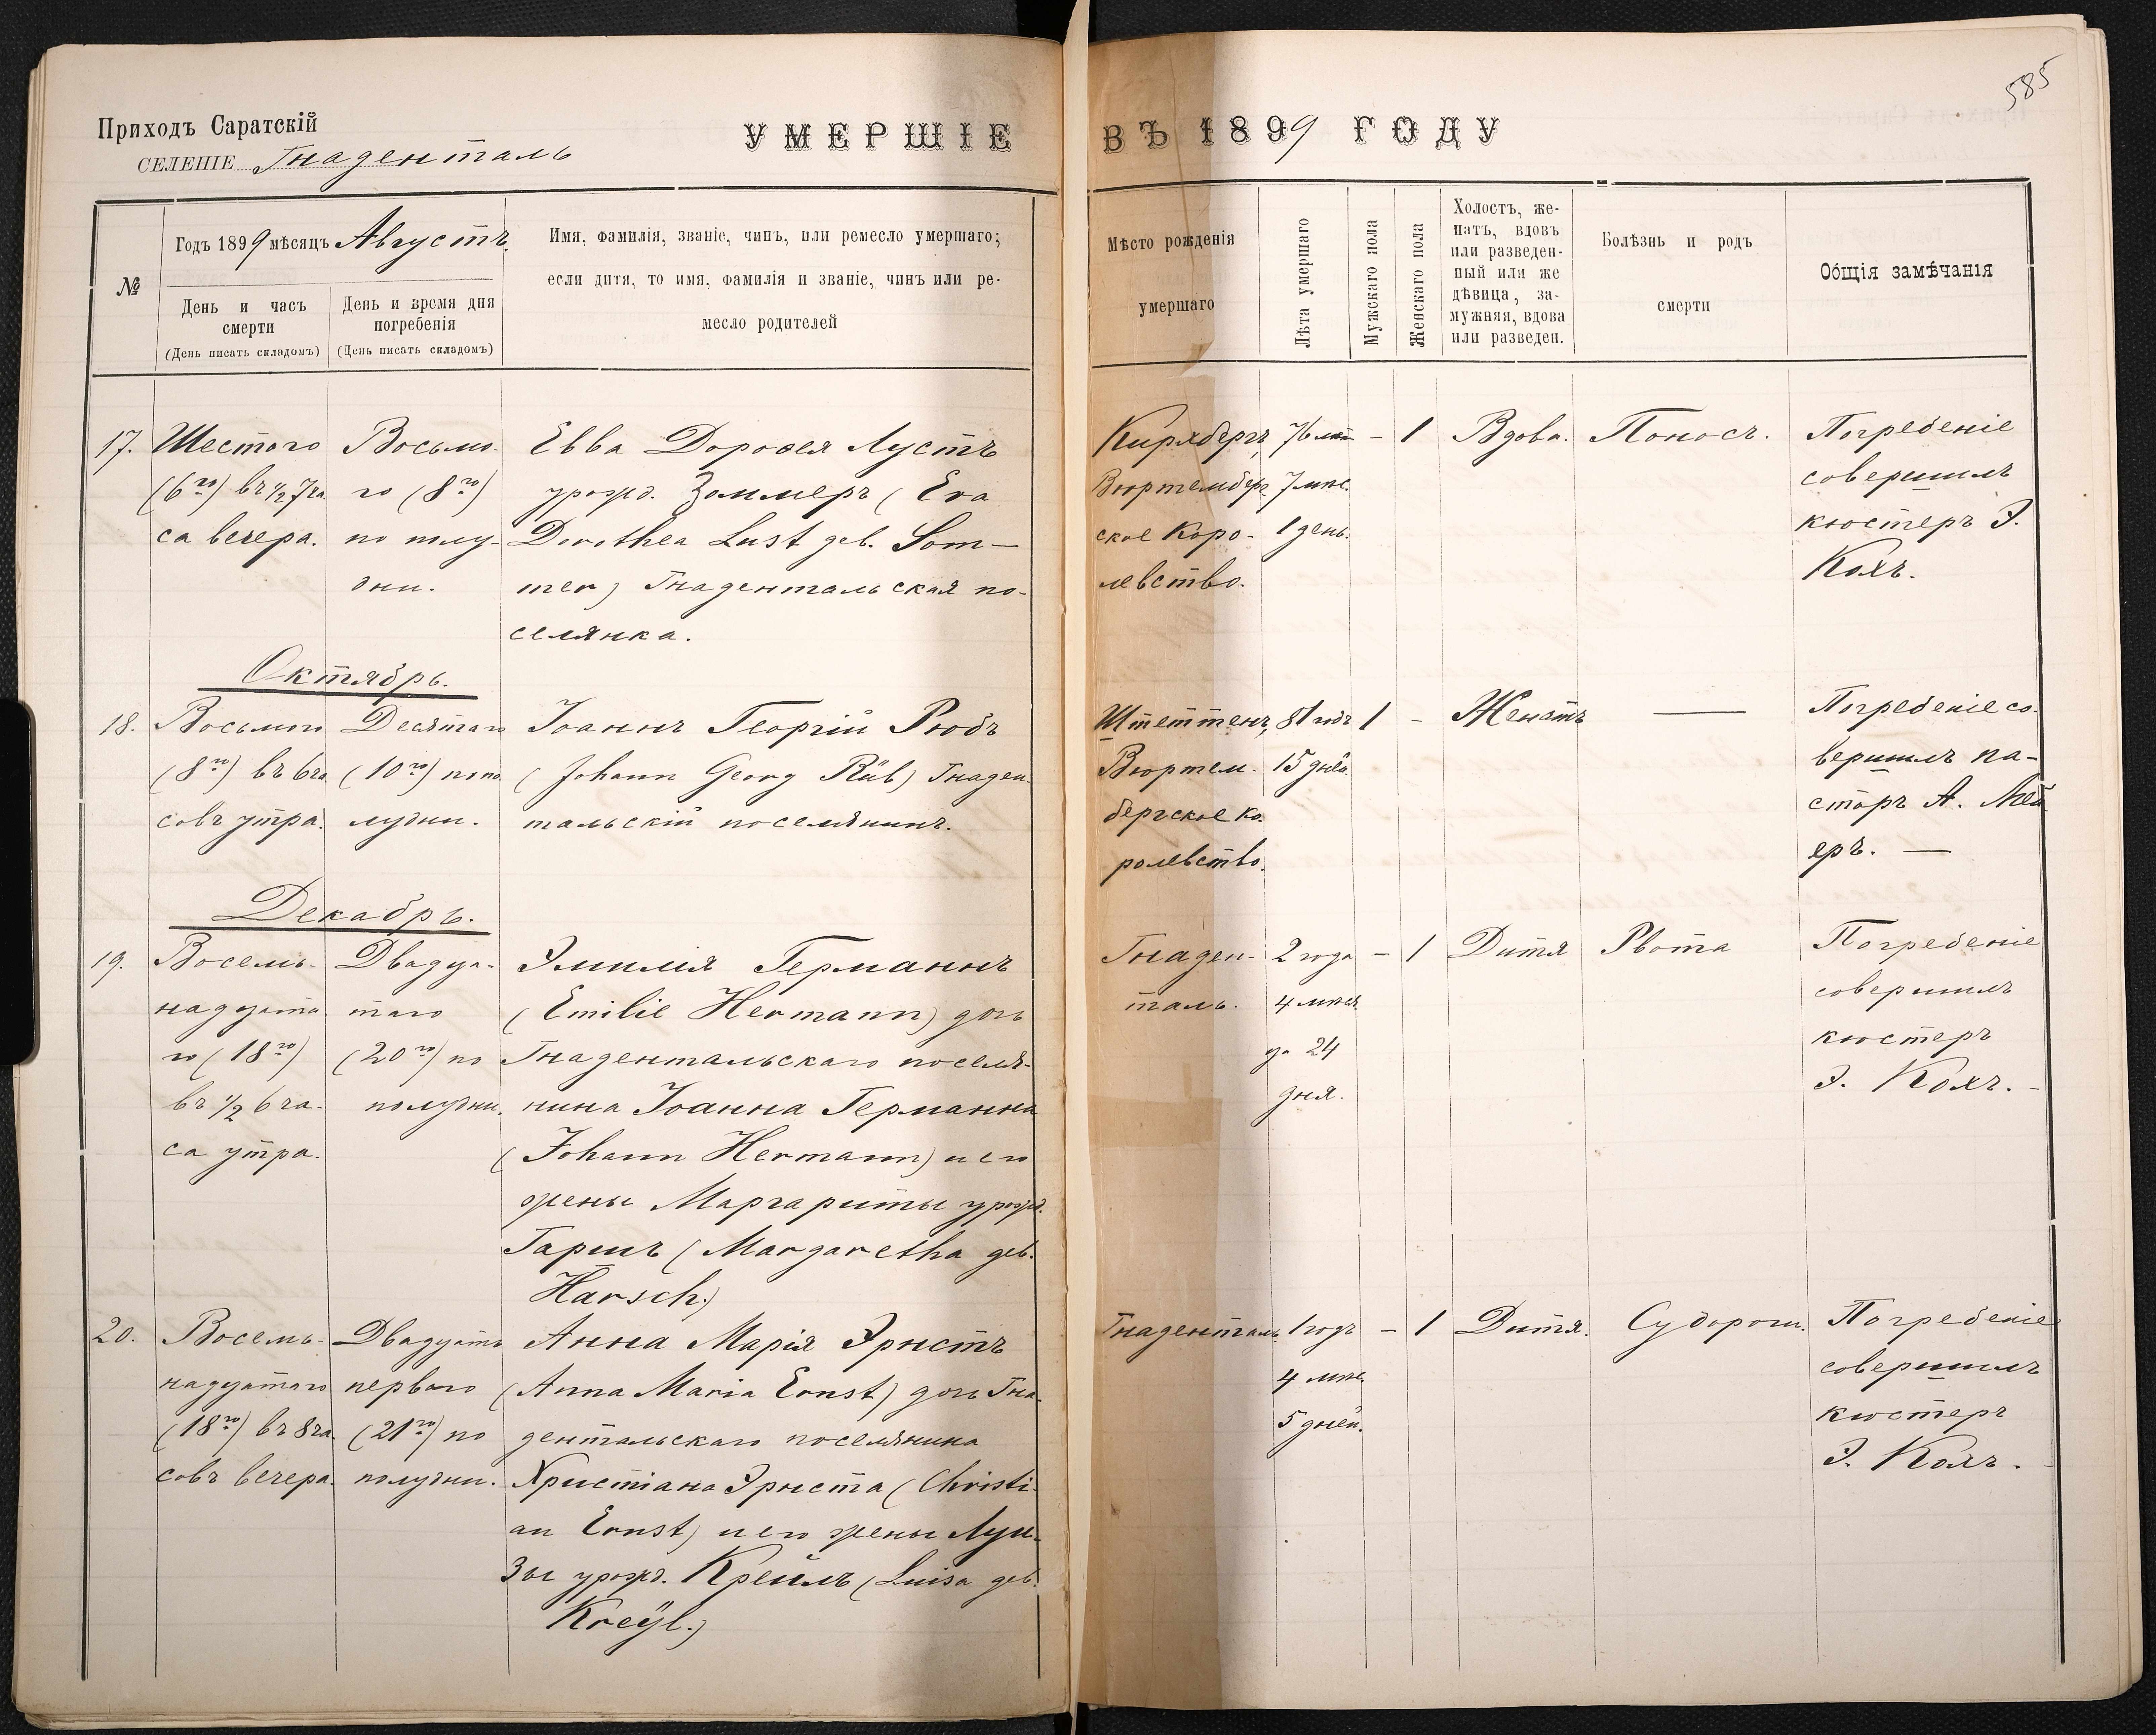 585
Приходъ Саратскій
СЕЛЕНІЕ Гнаденталь
УМЕРШІЕ ВЪ 1899 ГОДУ
№
Годъ 1899 мѣсяцъ Августъ.
День и часъ
смерти
(День писать складомъ)
День и время дня
погребенія
(День писать складомъ)
Имя, фамилія, званіе, чинъ, или ремесло умершаго;
если дитя, то имя, фамилія и званіе, чинъ или ре-
месло родителей
Мѣсто рожденія
умершаго
Лѣта умершаго
Мужскаго пола
Женскаго пола
Холостъ, же-
натъ, вдовъ
или разведен-
ный или же
дѣвица, за-
мужняя, вдова
или разведен.
Болѣзнь и родъ
смерти
Общія замѣчанія
17.
Шестого
(6го) въ ½ 7 ча
са вечера.
Восьмо-
го (8го)
по полу-
дни.
Евва Доротея Лустъ
урожд. Зоммеръ (Eva
Dorothea Lust geb. Som-
mer) Гнадентальская по-
селянка.
Кирхбергъ,
Вюртемберг
ское Коро-
левство.
76 лѣт
7 мѣс.
1 день.
- 1
Вдова.
Поносъ.
Погребеніе
совершилъ
кюстеръ Э.
Кохъ.
Октябрь.
18.
Восьмого
(8го) въ 6 ча
совъ утра.
Десятаго
(10го) по по
лудни.
Іоаннъ Георгій Рюбъ
(Johann Georg Rüb) Гнаден-
тальскій поселянинъ.
Штеттенъ,
Вюртем-
бергское Ко-
ролевство.
81 годъ
15 дней.
1 -
Женатъ
—
Погребеніе со-
вершилъ па-
сторъ А. Мей
еръ. —
Декабрь.
19.
Восемь-
надцата
го (18го)
въ ½ 6 ча-
са утра.
Двадца-
таго
(20го) по
полудни.
Эмилія Германнъ
(Emilie Hermann) дочь
Гнадентальскаго поселя-
нина Іоанна Германна
(Johann Hermann) и его
жены Маргариты урожд.
Гаршъ (Margaretha geb.
Harsch.)
Гнаден-
таль.
2 года
4 мѣся.
24
дня.
- 1
Дитя
Рвота
Погребеніе
совершилъ
кюстеръ
Э. Кохъ. -
20.
Восемь-
надцатаго
(18го) въ 8 ча
совъ вечера.
Двадцать
перваго
(21го) по
полудни.
Анна Марія Эрнстъ
(Anna Maria Ernst) дочь Гна-
дентальскаго поселянина
Христіана Эрнста (Christi-
an Ernst) и его жены Луи-
зы урожд. Крейль (Luisa geb.
Kreÿl.)
Гнаденталь.
1 годъ
4 мѣс.
5 дней.
- 1
Дитя.
Судороги.
Погребеніе
совершилъ
кюстеръ
Э. Кохъ. -